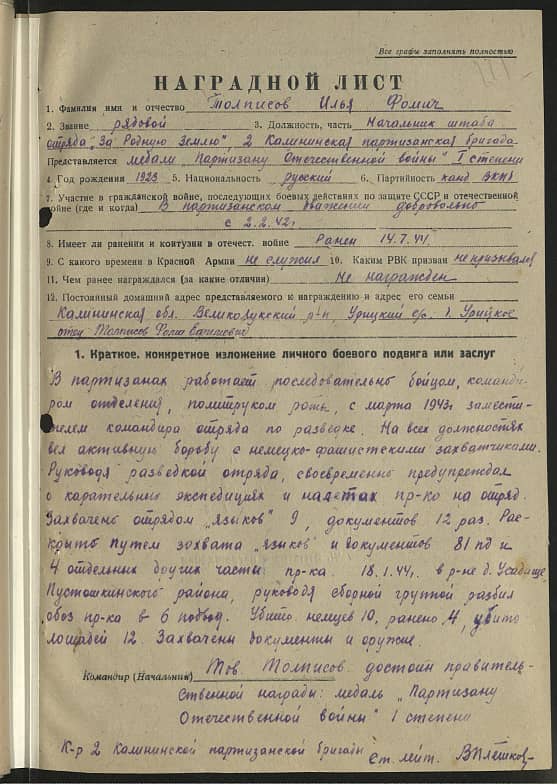 Все графы заполнять полностью
НАГРАДНОЙ ЛИСТ
1. Фамилия имя и отчество Толписов Илья Фомич
2. Звание рядовой 3. Должность, часть Начальник штаба
отряда „За Родную Землю", 2 Калининская партизанская бригада
Представляется медали „Партизану Отечественной войны" I степени
4. Год рождения 1923 5. Национальность русский 6. Партийность канд ВКПб
7. Участие в гражданской войне, последующих боевых действиях по защите СССР и отечественной
войне (где и когда) В партизанском движении добровольно
с 2.2.42г.
8. Имеет ли ранения и контузии в отечест. войне Ранен 14.7.44.
9. С какого времени в Красной Армии не служил 10. Каким РВК призван не призывался
11. Чем ранее награждался (за какие отличия) Не награжден
12. Постоянный домашний адрес представляемого к награждению и адрес его семьи
Калининская обл. Великолукский р-н, Урицкий с/с. д. Урицкое
отец Толписов Фома
1. Краткое, конкретное изложение личного боевого подвига или заслуг
В партизанах работает последовательно бойцом, команди-
ром отделения, политруком роты, с марта 1943г замести-
телем командира отряда по разведке. На всех должностях
вел активную борьбу с немецко-фашистскими захватчиками.
Руководя разведкой отряда, своевременно предупреждал
о карательных экспедициях и налетах пр-ка на отряд.
Захвачено отрядом „языков" 9, документов 12 раз. Рас-
крыто путем захвата „языков" и документов 81 пд и
4 отдельных других части пр-ка. 18.1.44г. в р-не д. Усадище
Пустошкинского района, руководя сборной группой разбил
обоз пр-ка в 6 подвод. Убито немцев 10, ранено 4, убито
лошадей 12. Захвачены документы и оружие.
Командир (Начальник) Тов. Толписов достоин правитель-
ственной награды: медаль „Партизану
Отечественной войны" I степени
К-р 2 Калининской партизанской бригады Ст. лейт. В Плешков